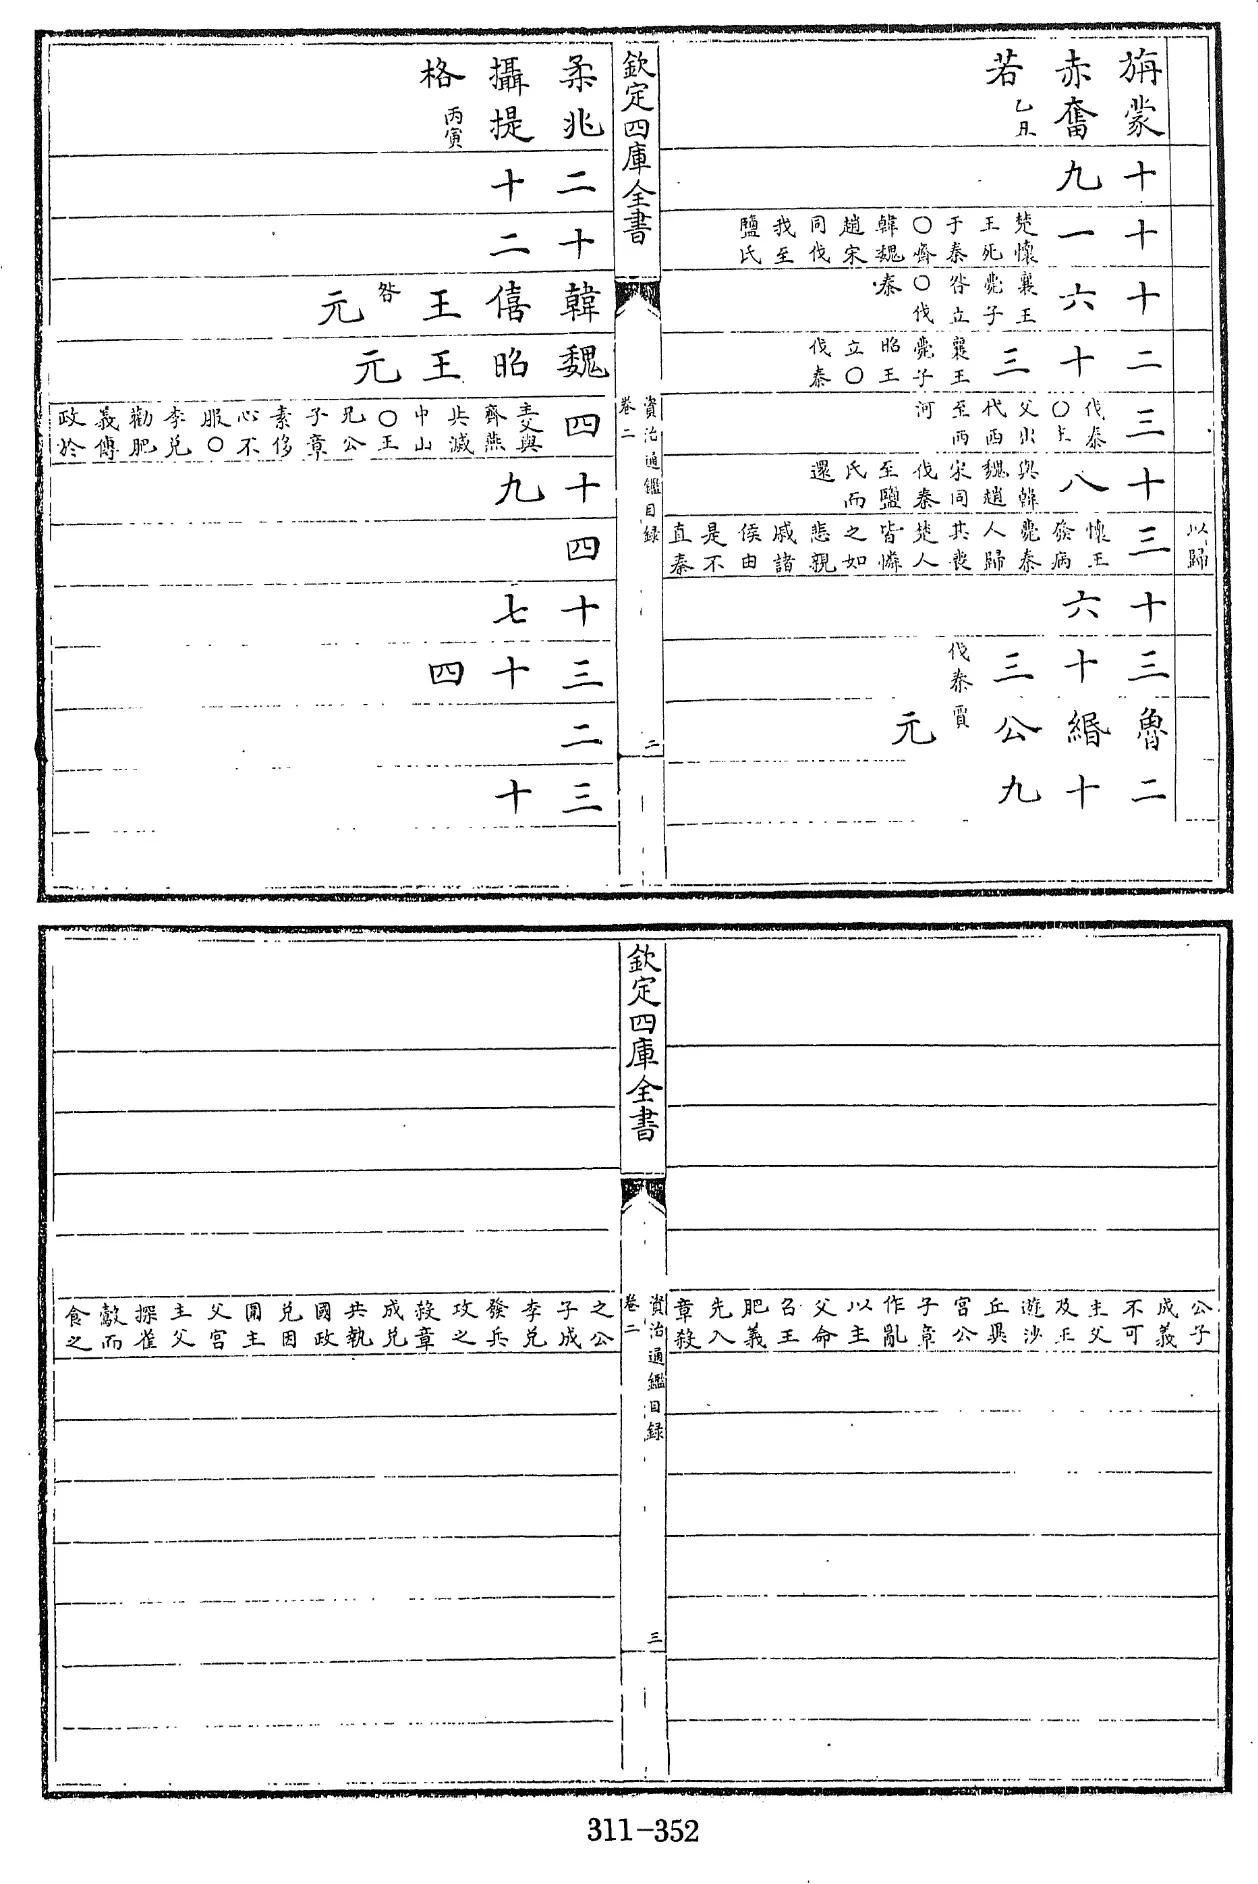 以歸
旃蒙赤奮若乙丑
十九
十一楚懷王死于秦○齊韓魏趙宋同伐我至鹽氏
十六襄王薨子咎立○伐秦
二十三襄王薨子昭王立○伐秦
三伐秦○主父出代西至西河
十八與韓魏趙宋同伐秦至鹽氏而還
三懷王發病薨秦人歸其喪楚人皆憐之如悲親戚諸侯由是不直秦
十六
三十三伐秦
魯緡公賈元
二十九
欽定四庫全書
資治通鑑目録
卷二
二
柔兆攝提格丙寅
二十
十二
韓僖王咎元
魏昭王元
四主父與齊燕共滅中山○王兄公子章素侈心不服○李兌勸肥義傳政於
十九
四
十七
三十四
二
三十
公子成義不可主父及王遊沙丘異宮公子章作亂以主父命召王肥義先入章殺
欽定四庫全書
資治通鑑目録
卷二
三
之公子成李兌發兵攻之殺章成兌共執國政兌因圍主父宮主父探雀鷇而食之
311-352